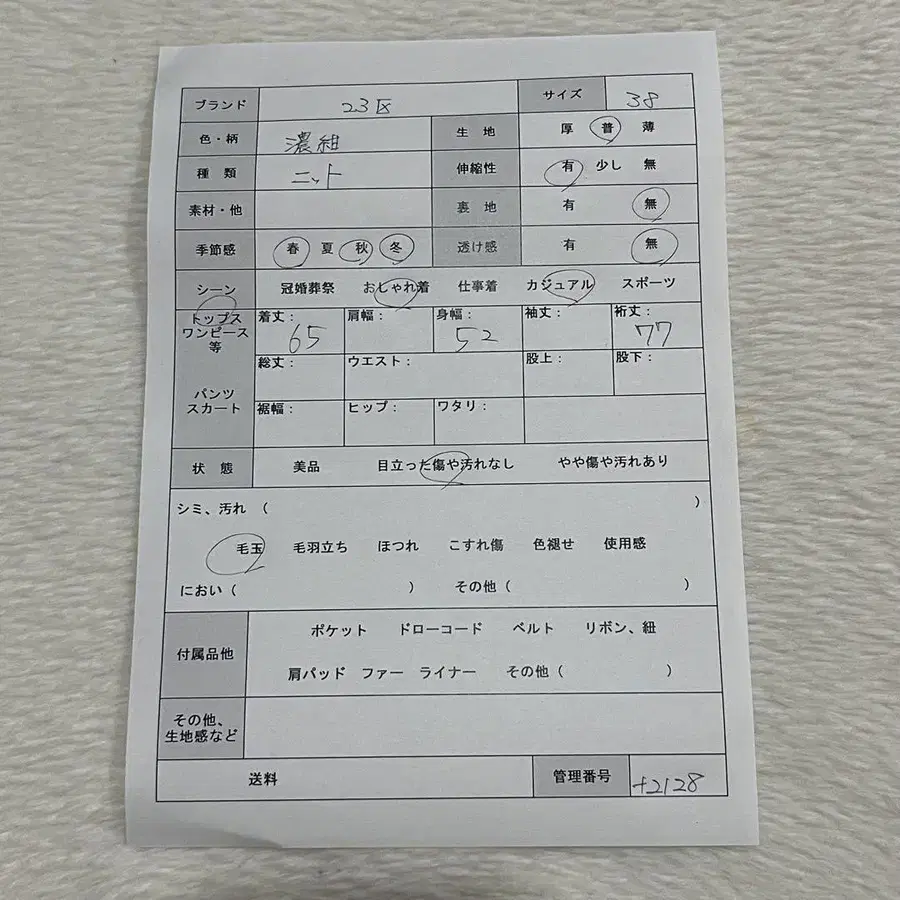 ブランド 23区 サイズ 38
色・柄 濃紺 生 地 厚 普 薄
種 類 ニット 伸縮性 有 少し 無
素材・他 裏 地 有 無
季節感 春 夏 秋 冬 透け感 有 無
シーン 冠婚葬祭 おしゃれ着 仕事着 カジュアル スポーツ
トップス
ワンピース
等
着丈: 65 肩幅: 身幅: 52 袖丈: 裄丈: 77
総丈: ウエスト: 股上: 股下:
パンツ
スカート
裾幅: ヒップ: ワタリ:
状 態 美品 目立った傷や汚れなし やや傷や汚れあり
シミ、汚れ ( )
毛玉 毛羽立ち ほつれ こすれ傷 色褪せ 使用感
におい( ) その他( )
付属品他 ポケット ドローコード ベルト リボン、紐
肩パッド ファー ライナー その他( )
その他、
生地感など
送料 管理番号 +2128